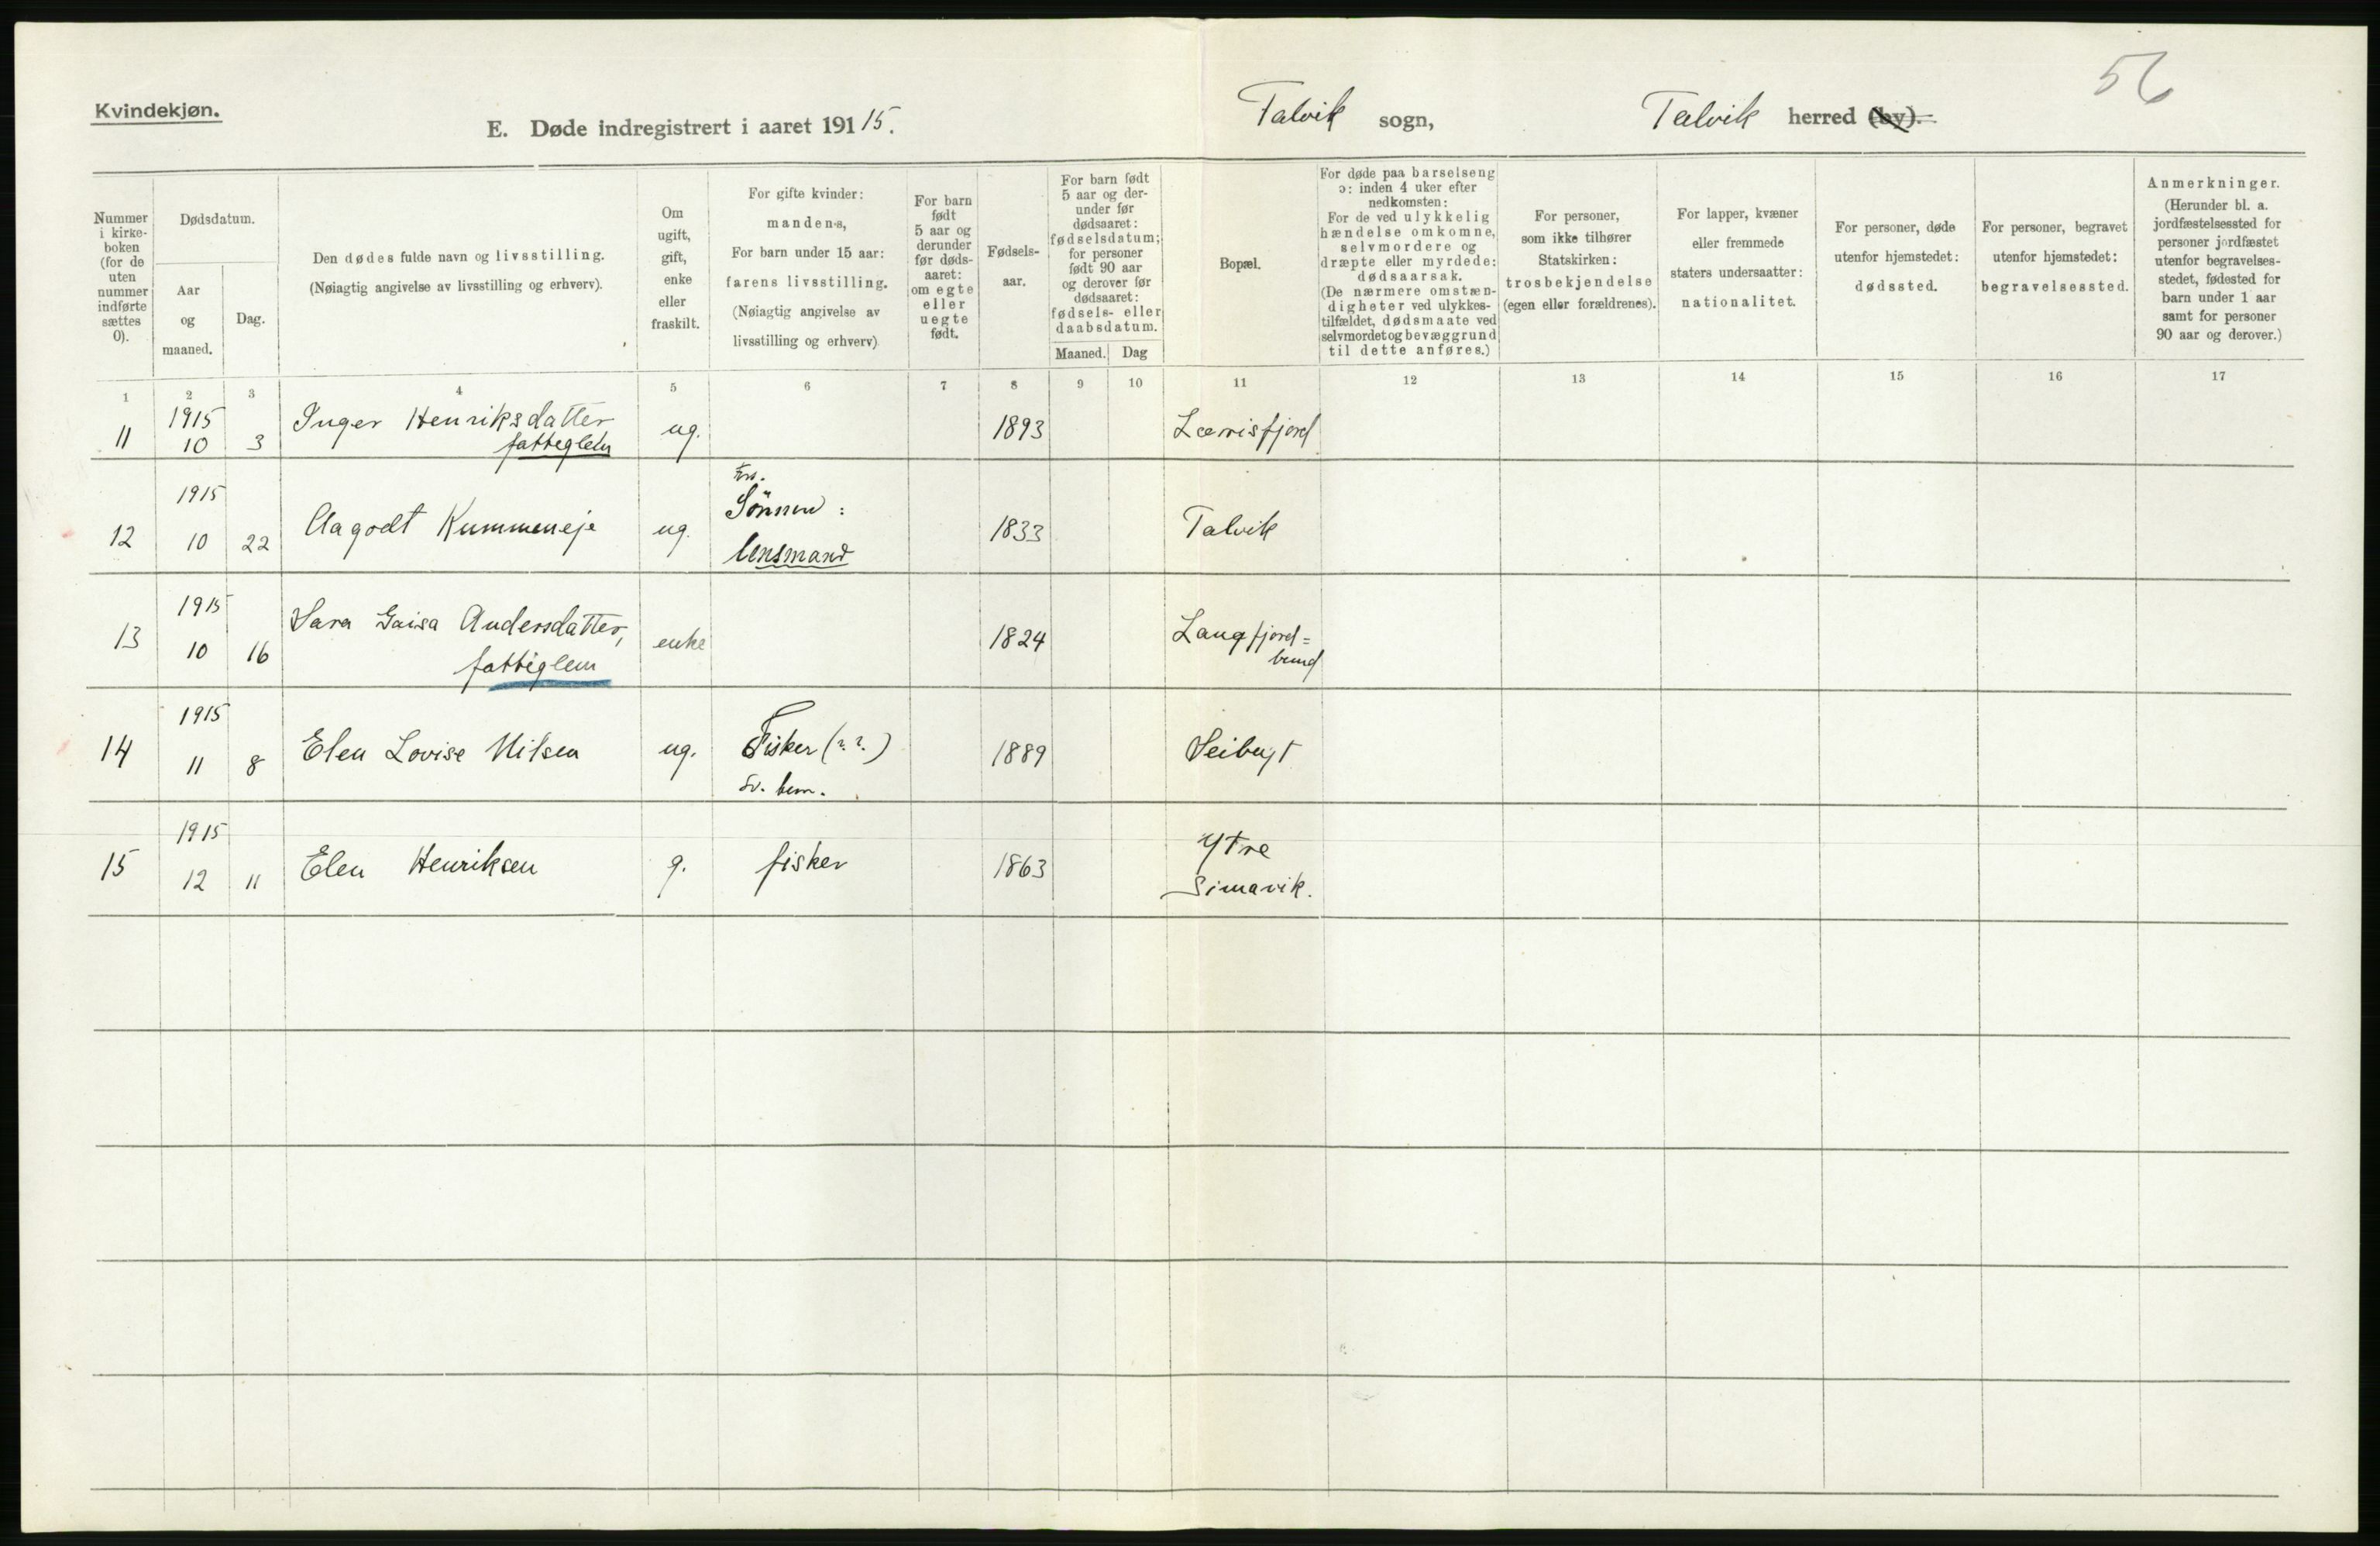 56
Kvindekjøn.
E. Døde indregistrert i aaret 19115.
Talvik sogn,
Talvik herred (by).
Nummer
i kirke-
boken
(for de
uten
nummer
indførte
sættes
0).
Dødsdatum.
Aar
og
maaned.
Dag.
Den dødes fulde navn og livsstilling.
(Nøiagtig angivelse av livsstilling og erhverv).
Om
ugift,
gift,
enke
eller
fraskilt.
For gifte kvinder:
mandens,
For barn under 15 aar:
farens livsstilling.
(Nøiagtig angivelse av
livsstilling og erhverv)
For barn
født
5 aar og
derunder
før døds-
aaret:
om egte
eller
uegte
født.
Fødsels-
aar.
For barn født
5 aar og der-
under før
dødsaaret:
fødselsdatum;
for personer
født 90 aar
og derover før
dødsaaret:
fødsels- eller
daabsdatum.
Maaned. Dag
Bopæl.
For døde paa barselseng
ɔ: inden 4 uker efter
nedkomsten:
For de ved ulykkelig
hændelse omkomne,
selvmordere og
dræpte eller myrdede:
dødsaarsak.
(De nærmere omstæn-
digheter ved ulykkes-
tilfældet, dødsmaate ved
selvmordet og bevæggrund
til dette anføres.)
For personer,
som ikke tilhører
Statskirken:
trosbekjendelse
(egen eller forældrenes).
For lapper, kvæner
eller fremmede
staters undersaatter:
nationalitet.
For personer, døde
utenfor hjemstedet:
dødssted.
For personer, begravet
utenfor hjemstedet:
begravelsessted.
Anmerkninger.
(Herunder bl. a.
jordfæstelsessted for
personer jordfæstet
utenfor begravelses-
stedet, fødested for
barn under 1 aar
samt for personer
90 aar og derover.)
1 2 3 4 5 6 7 8 9 10 11 12 13 14 15 16 17
1915
11 10 3 Inger Henriksdatter ug. 1893
fattiglem
1915
12 10 22 Aagodt Kummeneje ug. 1833 Talvik
Sønnen:
lensmand
1915
13 10 16 Sara Gaisa Andersdatter, enke 1824 Langfjord=
fattiglem bund
1915
14 11 8 Elen Lovise Nilsen ug. Fisker (?.?.) 1889 Seibugt
1915
15 12 11 Elen Henriksen g. fisker 1863 Ytre
Simavik.